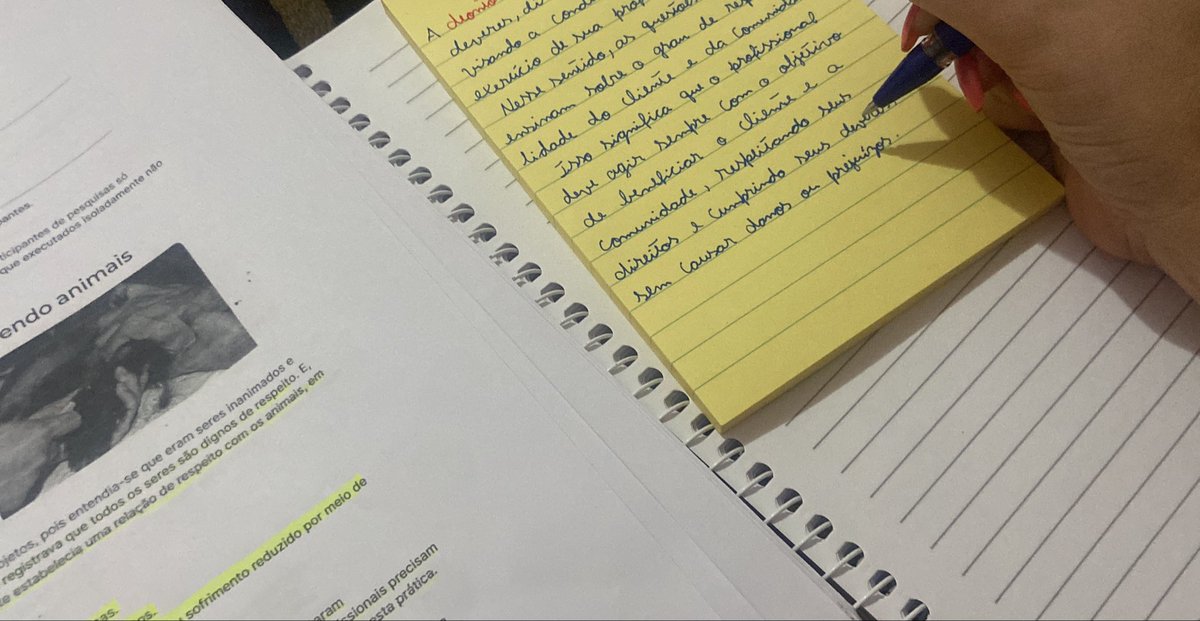 antes.
ticipantes de pesquisas só
que executados isoladamente não
endo animais
ojetos, pois entendia-se que eram seres inanimados e
registrava que todos os seres são dignos de respeito. E,
e estabelecia uma relação de respeito com os animais, em
sofrimento reduzido por meio de
as.
os.
aram
ssionais precisam
esta prática.
A deonto
deveres, di
visando a condu
exercício de sua prof
Nesse sentido, as questões
ensinam sobre o grau de resp
lidade do cliente e da comunida
Isso significa que o profissional
deve agir sempre com o objetivo
de beneficiar o cliente e a
comunidade, respeitando seus
direitos e cumprindo seus deveres,
sem causar danos ou prejuízos.